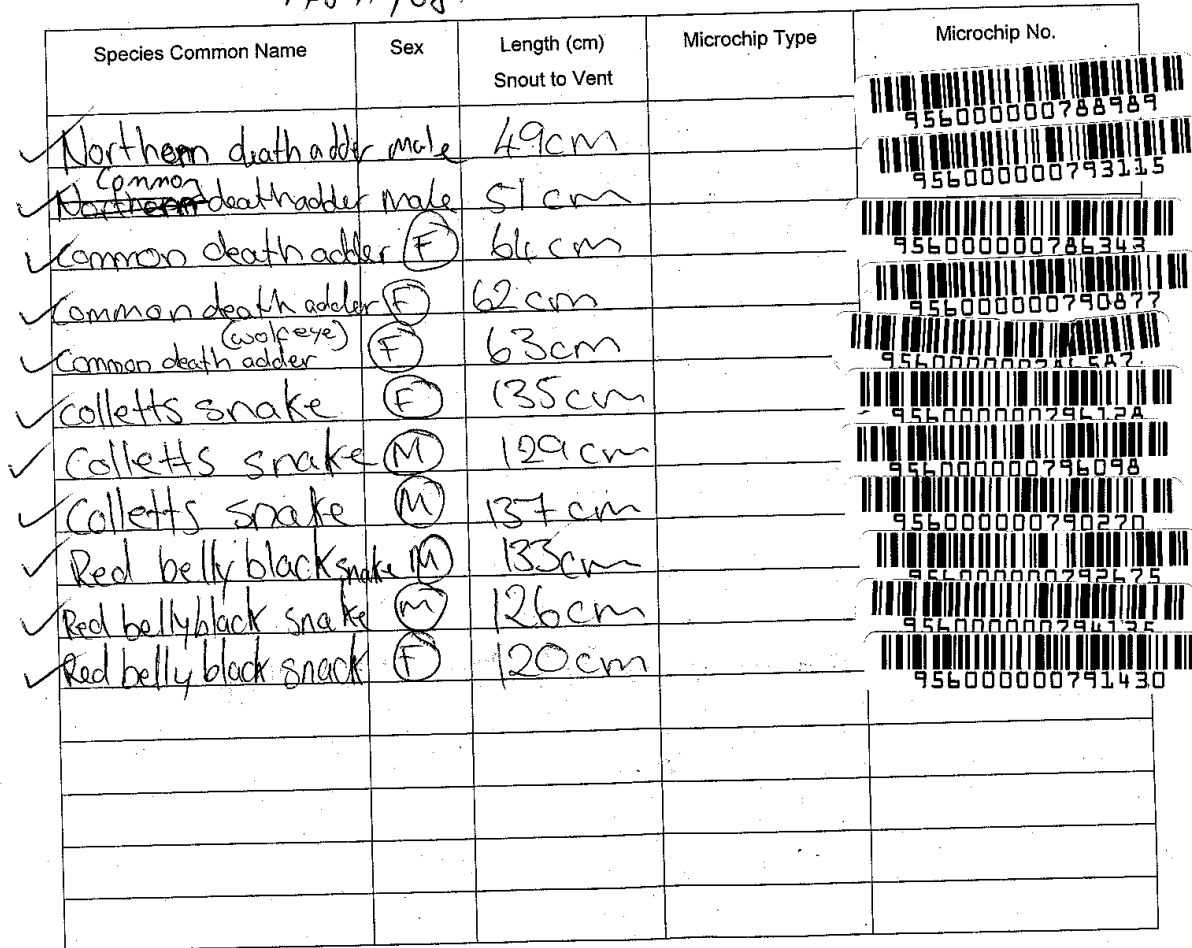 Species Common Name Sex Length (cm) Snout to Vent Microchip Type Microchip No.
956000000788989
Northern death adder male 49cm
956000000793115
Common
Northern death adder male 51 cm
956000000786343
Common death adder F 64 cm
956000000790877
Common death adder F 62 cm
(wolf eye)
Common death adder F 63cm
colletts snake F 135cm
956000000796128
Colletts snake M 129 cm
956000000796098
Colletts snake M 137 cm
956000000790270
Red belly black snake M 133cm
956000000792675
Red belly black snake M 126cm
956000000794135
Red belly black snack F 120cm
956000000791430